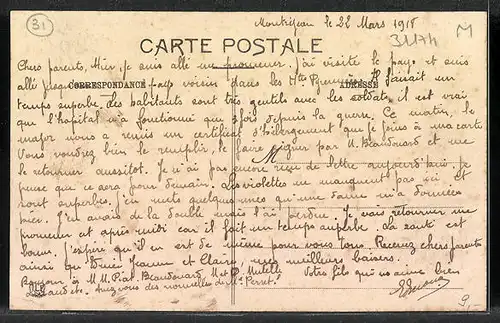 Montréjeau le 22 Mars 1918
31
31174
M
CARTE POSTALE
CORRESPONDANCE
ADRESSE
Chers parents, Hier, je suis allé me promener. J'ai visité le pays et suis
allé jusqu' pays voisin dans les Htes Pyrénées. Il faisait un
temps superbe. Les habitants sont très gentils avec les soldats, il est vrai
que l'hôpital a fonctionné que 3 fois depuis la guerre. Ce matin, le
major nous a remis un certificat d'hébergement que je joins à ma carte
Vous voudrez bien le remplir, le faire signer par M. Beaudouard et me
M
le retourner aussitôt. Je n'ai pas encore reçu de lettre aujourd'hui. Je
pense que ce sera pour demain. Les violettes ne manquent pas ici et
sont superbes. J'en mets quelques unes qu'une dame m'a données
hier. J'en avais de la double mais l'ai perdue. Je vais retourner me
promener cet après-midi car il fait un temps superbe. La santé est
bonne. J'espère qu'il en est de même pour vous tous. Recevez chers parents
ainsi que Jeanne et Claire, mes meilleurs baisers.
Bonjour à M.M. Piat, Beaudouard, M et
Votre fils qui vous aime bien
Avez-vous des nouvelles de Mr Perret.
9,-